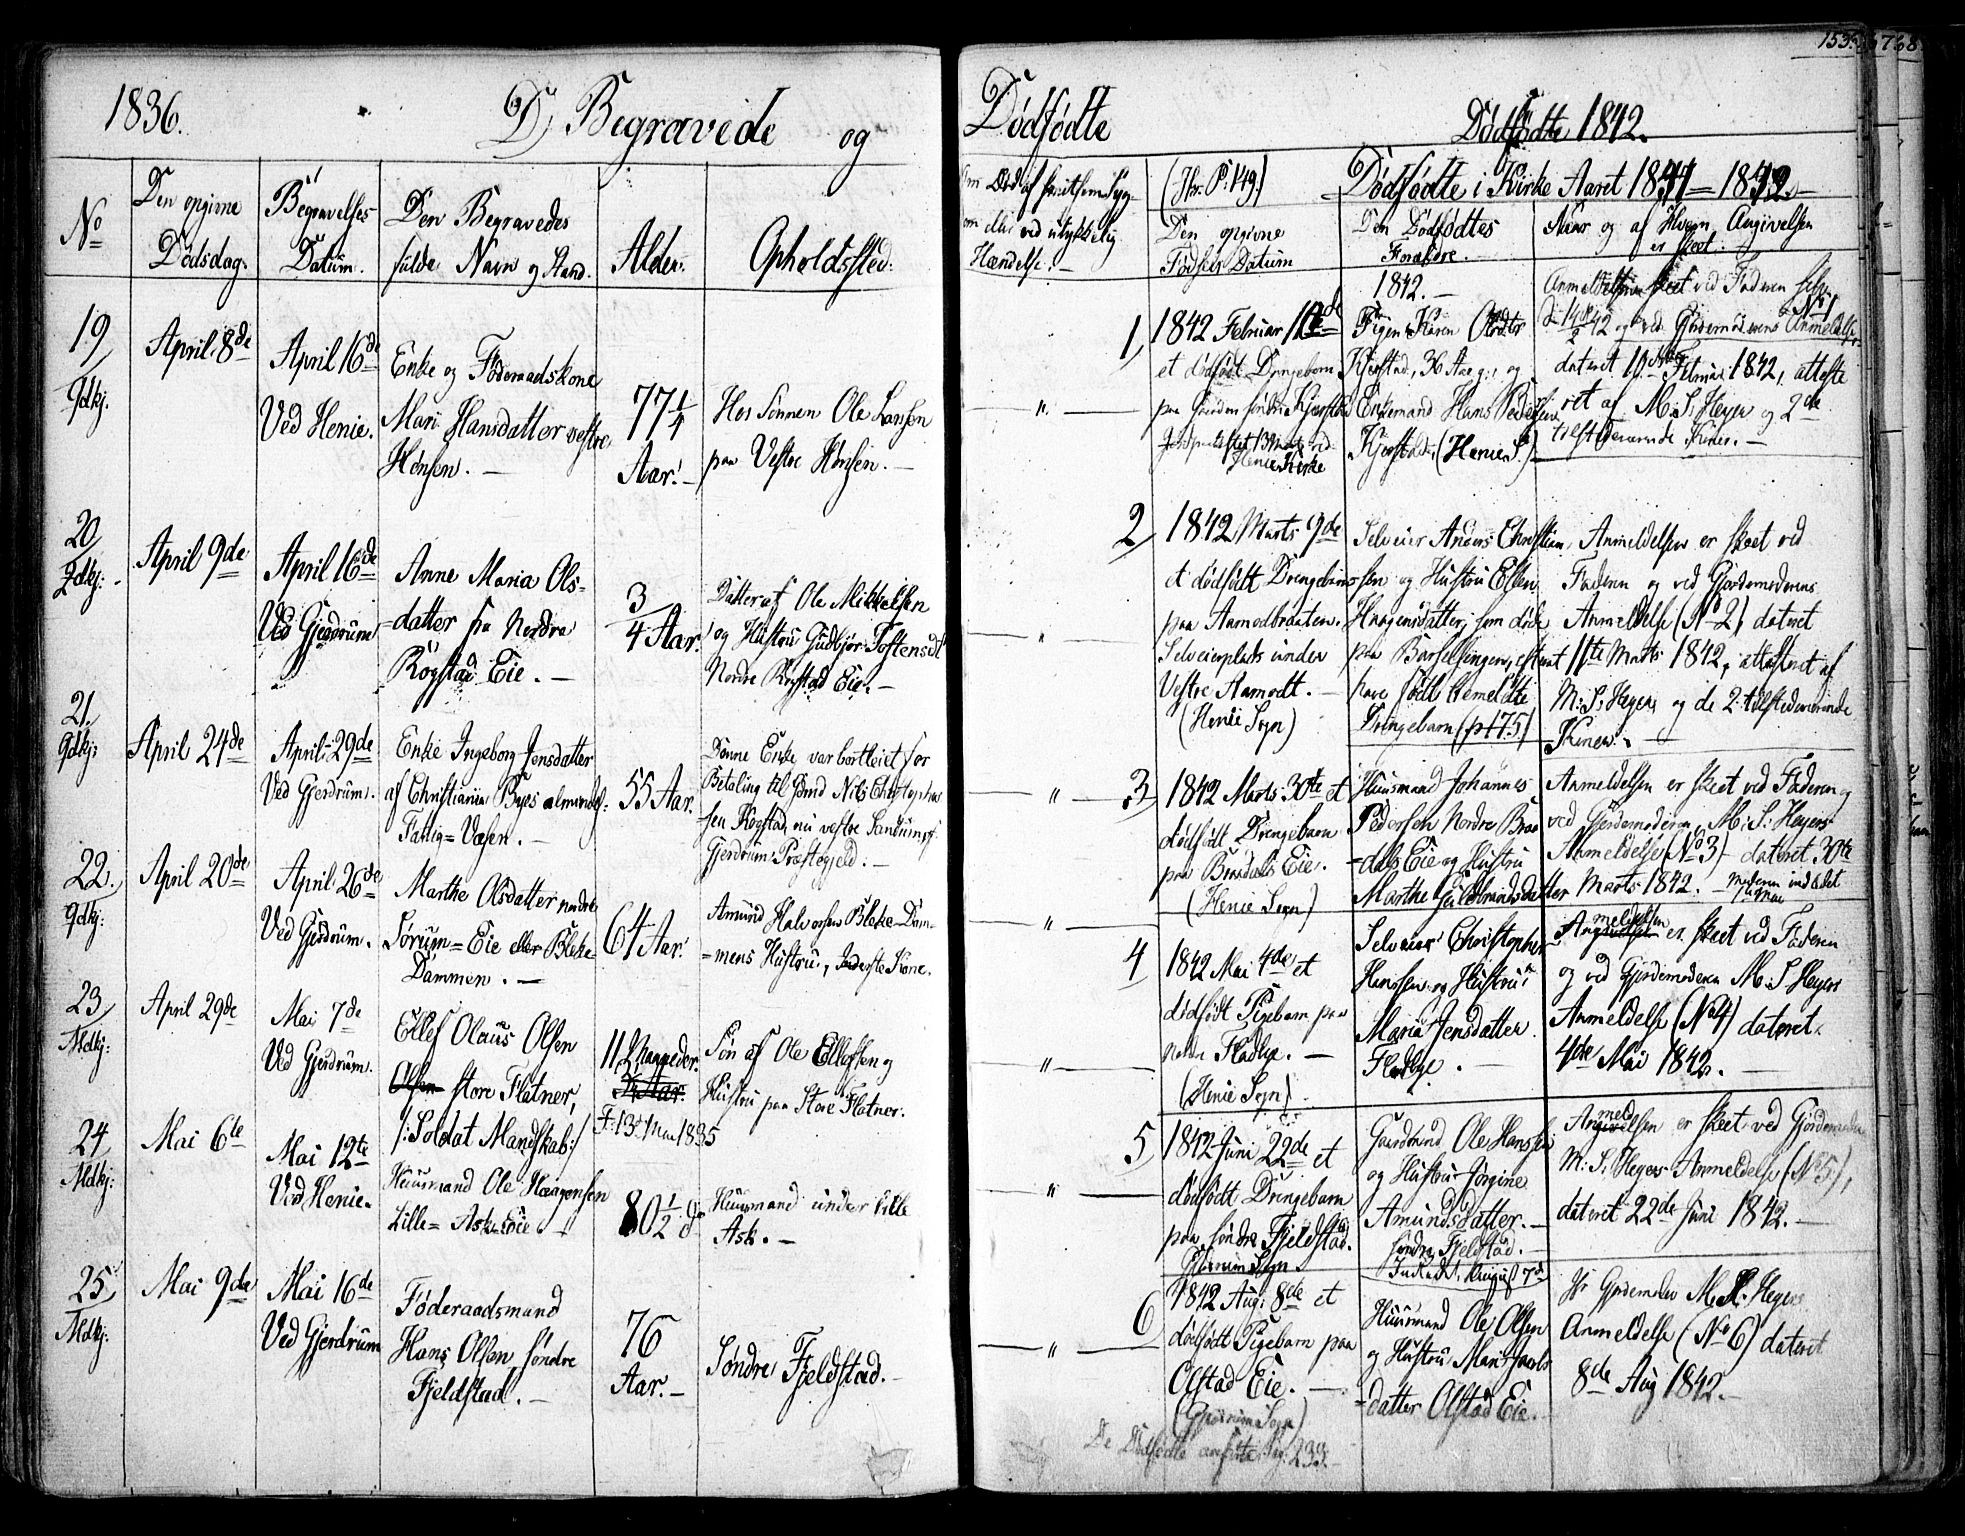 1836.
D, Begravede og
No
Den opgivne
Dødsdag.
Begravelses
Datum.
Den Begravedes
fulde Navn og Stand.
Alder.
Opholdssted.
19
Gdkj.
April 8de
April 16de
Ved Henie.
Enke og Föderaadskone
Mari Hansdatter vestre
Hønsen. —
77 1/4
Aar. —
Hos Sönnen Ole Larssen
paa Vestre Hønsen. —
20
Qdkj:
April 9de
April 16de
Ved Gjerdrum
Anne Maria Ols-
datter fra Nordre
Rögstad Eie. —
3/4 Aar.
Datter af Ole Mikkelsen
og Hustru Gudbjør Tostensdt
Nordre Rögstad Eie. —
21.
Qdkj:
April 24de
April 29de
Ved Gjerdrum.
Enke Ingeborg Jensdatter
af Christiania Byes almindel:
Fattig= Væsen. —
55 Aar.
Denne Enke var bortleiet for
Betaling til Gmd Nils Christopher
sen Rogstad, nu vestre
Gjerdrums Præstegjeld. —
22.
Qdkj:
April 20de
April 26de
Ved Gjerdrum.
Marthe Olsdatter nordre
Sørum= Eie eller Bleke-
Dammen. —
64 Aar.
Amund Halvorsen Bleke Dam-
=mens Hustru, Inderste Kone.
23
Mdkj:
April 29de
Mai 7de
Ved Gjerdrum.
Ellef Olaus Olsen
Olsen store Flatner,
11 Maaneder.
3/4 Aar.
F: 13de Mai 1835
Søn af Ole Ellefsen og
Hustru paa Store Flatner.
24
Mdkj:
Mai 6te
Mai 12te
Ved Henie.
/: Soldat Mandskab :/
Huusmand Ole Haagensen
Lille= Ask Eie. —
80 1/2
Huusmand under lille
Ask. —
25
Mdkj:
Mai 9de
Mai 16de
Ved Gjerdrum
Föderaadsmand
Hans Olsen söndre
Fjeldstad. —
76
Aar. —
Søndre Fjeldstad. —
Dødfødte
Dødfødte 1842.
153.
om Død af
om eller ved ulykkelig
Hændelse. —
(Fr. P: 149.)
Dødfødte i Kirke Aaret 1841 = 1842. —
Den opgivne
Fødsels Datum
Den Dødfødtes
Forældre.
Naar og af Hvem Angivelsen
er skeet:
1842. —
1,
1842 Februar
et dødfødt Drengebarn
paa Gaarden søndre Kjerstad
13 Marts ved
Henie Kirke
Pigen Karen
Kjerstad, 36 Aar g:, og
Enkemand Hans Pedersen
Kjerstad, (Henie S.)
Anmeldelsen skeet ved Faderen selv
42 og ved Gjordemoderens Anmeldelse No 1
dateret Februar 1842, atteste
ret af M: S: Heyer og 2de
tilstedeværende Koner. —
2,
1842 Marts 9de
et dødfødt Drengebarn
paa Aamodbraaten,
Selveierplads under
Vestre Aamodt. —
(Henie Sogn)
Selveier Anders Christian
sen og Hustru Ellen
Haagensdatter, som døde
paa Barselsengen, efter at
have født bemeldte
Drengebarn (p: 175.)
Anmeldelsen er skeet ved
Faderen og ved Gjordemoderens
Anmeldelse (No 2) dateret
11te Marts 1842, attesteret af
M: S: Heyer og de 2 tilstedeværende
Koner. —
3,
1842 Marts 30te et
dødfødt Drengebarn
paa Braadals Eie.
(Henie Sogn)
Huusmand Johannes
Pedersen Nordre Braa
=dals Eie og Hustru
Marthe Guldbrandsdatter
Anmeldelsen er skeet ved Faderen og
ved Gjordemoderen M: S: Heyers
Anmeldelse (No 3) dateret 30te
Marts 1842. —
4
1842 Mai 4de et
dødfødt Pigebarn paa
Fladbye. —
(Henie Sogn)
Selveier Christopher
Hanssen og Hustru
Maria Jensdatter
Fladbye. —
Anmeldelsen er skeet ved Faderen
og ved Gjordemoderen M: S Heyers
Anmeldelse (No 4) dateret
4de Mai 1842. —
5,
1842 Juni 22de et
dødfødt Drengebarn
paa søndre Fjeldstad.
Gjerdrum Sogn
Gaardmand Ole Hanssen
og Hustru Jørgine
Amundsdatter. —
søndre Fjeldstad. —
Indledt August 7de
Anmeldelsen er skeet ved Gjordemoder
M: S: Heyers Anmeldelse (No 5),
dateret 22de Juni 1842. —
6
1842 Aug: 8de et
dødfødt Pigebarn paa
Olstad Eie. —
(Gjerdrum Sogn)
Huusmand Ole Olsen
og Hustru Mari Jacobs
=datter Olstad Eie. —
Gjordemoder M. S. Heyers
Anmeldelse (No 6) dateret
8de Aug 1842. —
De Dødfødte ansatte Pag. 233. —